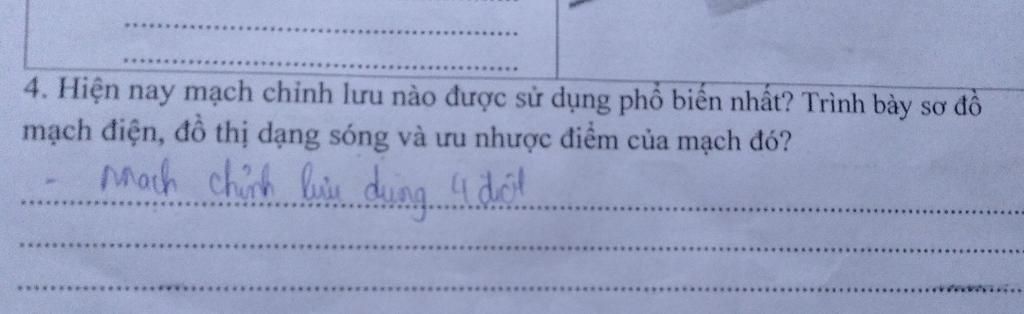 4. Hiện nay mạch chỉnh lưu nào được sử dụng phổ biến nhất? Trình bày sơ đồ
mạch điện, đồ thị dạng sóng và ưu nhược điểm của mạch đó?
- Mạch chỉnh lưu dùng 4 điôt